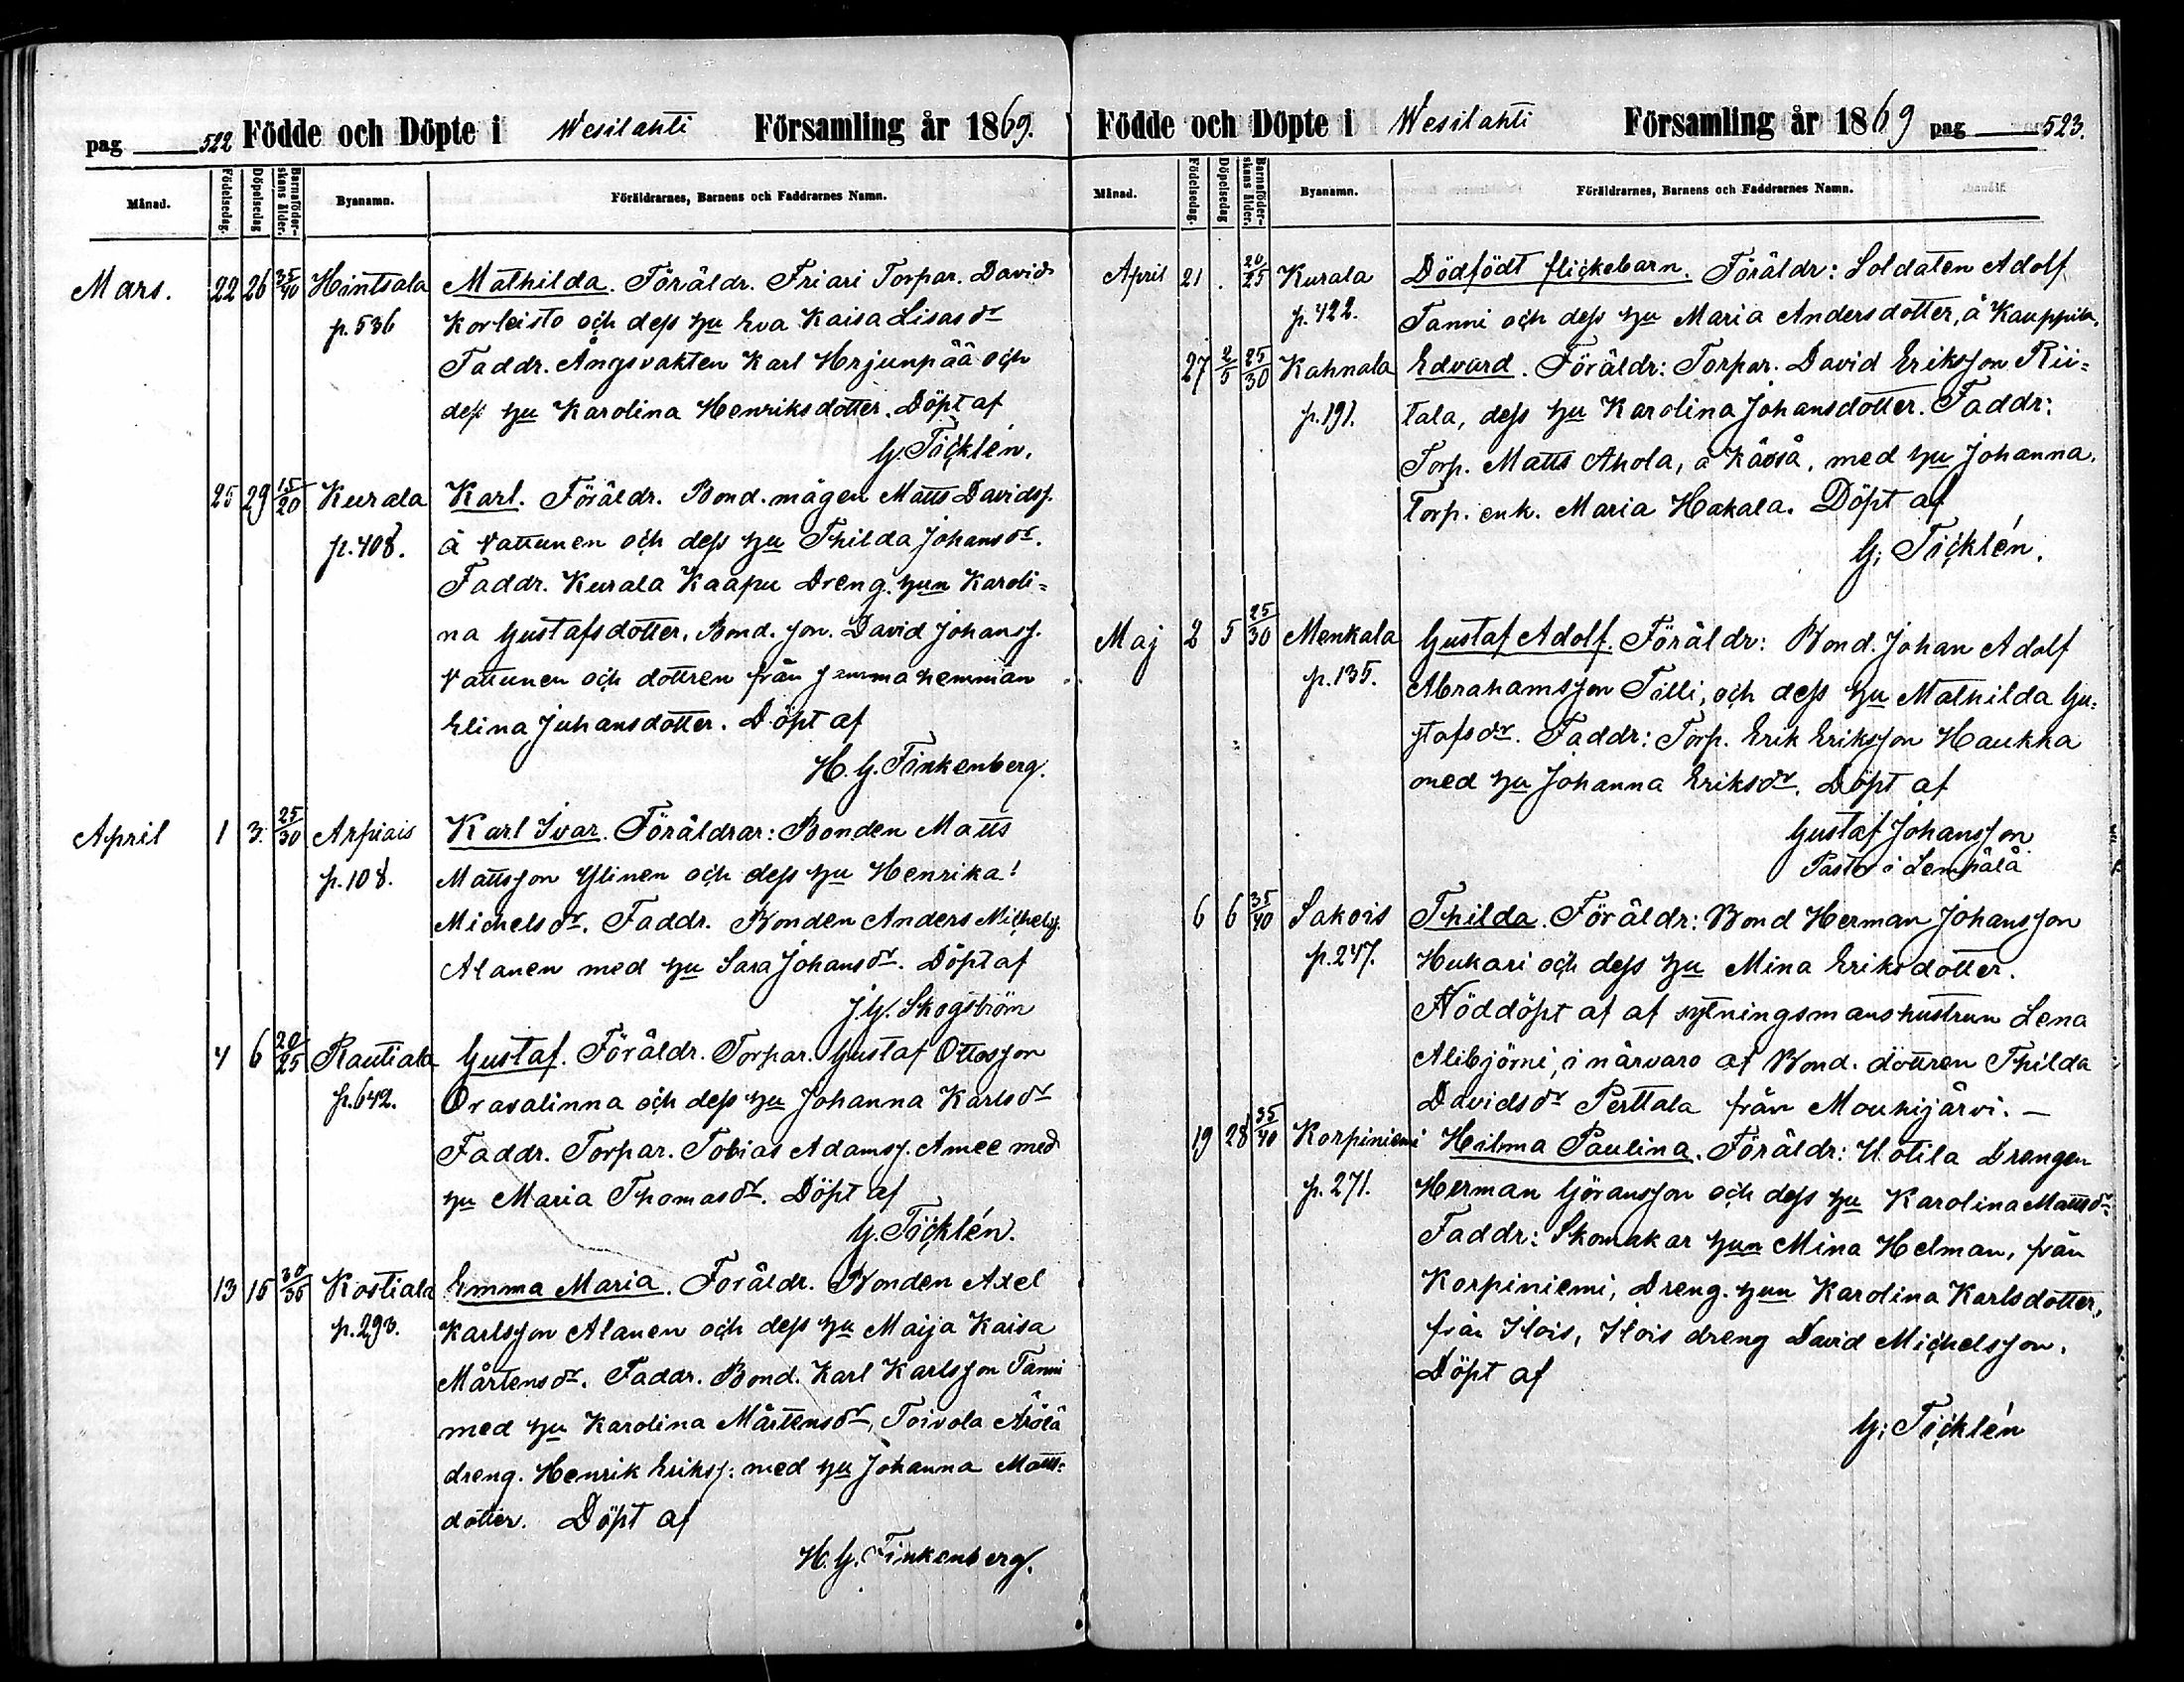 pag 522 Födde och Döpte i Wesilahti Församling år 1869.
Månad. Födelsedag. Döpelsedag Barnaföderskans ålder. Byanamn. Föräldrarnes, Barnens och Faddrarnes Namn.
Mars. 22 26 35/40 Hintsala Mathilda. Föräldr. Friari Torpar. David
p. 536 Korkeisto och dess hu Eva Kaisa Lisasdr
Faddr. Ångsvakten Karl Hrjunpää och
dess hu Karolina Henriksdotter. Döpt af
G. Ticklén.
25 29 15/20 Kurala Karl. Föräldr. Bond. mågen Matts Davids.
p. 408. å Nattunen och dess hu Thilda Johansdr.
Faddr. Kurala Kaapu Dreng. hun Karoli-
na Gustafsdotter, Bond. son. David Johanss.
Nattunen och dottren från samma hemman
Elina Juhansdotter. Döpt af
H. G. Finkenberg.
April 1 3. 25/30 Arpiais Karl Ivar. Föräldrar: Bonden Matts
p. 108. Mattsson Ylinen och dess hu Henrika!
Michelsdr. Faddr. Bonden Anders Michels.
Alanen med hu Sara Johansdr. Döpt af
J. G. Skogström
4 6 20/25 Rautiala Gustaf. Föräldr. Torpar. Gustaf Ottosson
p. 642. Oravalinna och dess hu Johanna Karlsdr
Faddr. Torpar. Tobias Adams. Amee med
hu Maria Thomasdr. Döpt af
G. Ticklén.
13 15 30/35 Kostiala Emma Maria. Foräldr. Bonden Axel
p. 293. Karlsson Alanen och dess hu Maija Kaisa
Mårtensdr. Faddr. Bond. Karl Karlsson Tanni
med hu Karolina Mårtensdr, Toivola
dreng. Henrik Eriks. med hu Johanna Matts-
dotter. Döpt af
H. G. Finkenberg.
Födde och Döpte i Wesilahti Församling år 1869 pag 523.
Månad. Födelsedag. Döpelsedag Barnaföderskans ålder. Byanamn. Föräldrarnes, Barnens och Faddrarnes Namn.
April 21 . 20/25 Kurala Dödfödt flickebarn. Föräldr: Soldaten Adolf
p. 422. Tanni och dess hu Maria Andersdotter, å Kauppila.
27 2/5 25/30 Kahnala Edvard. Föräldr: Torpar. David Eriksson Rii-
p. 191. tala, dess hu Karolina Johansdotter. Faddr:
Torp. Matts Ahola, å, med hu Johanna.
Torp. enk. Maria Hakala. Döpt af
G. Ticklén.
Maj 2 5 25/30 Menkala Gustaf Adolf. Föräldr: Bond. Johan Adolf
p. 135. Abrahamsson Tilli, och dess hu Mathilda Gu-
stafsdr. Faddr: Torp. Erik Eriksson Haukka
med hu Johanna Eriksdr. Döpt af
Gustaf Johansson
Pastor i Lempälä
6 6 35/40 Sakois Thilda. Föräldr: Bond Herman Johansson
p. 247. Hukari och dess hu Mina Eriksdotter.
Nöddöpt af af sytningsmanshustrun Lena
Alibjörni, i närvaro af Bond. dottren Thilda
Davidsdr Perttala från Mouhijärvi. —
19 28 35/40 Korpiniemi Hilma Paulina. Föräldr: Uotila Drengen
p. 271. Herman Göransson och dess hu Karolina Mattsdr
Faddr: Skomakar hun Mina Helman, från
Korpiniemi, Dreng. hun Karolina Karlsdotter,
från Ilois, Ilois dreng David Michelsson.
Döpt af
G. Ticklén